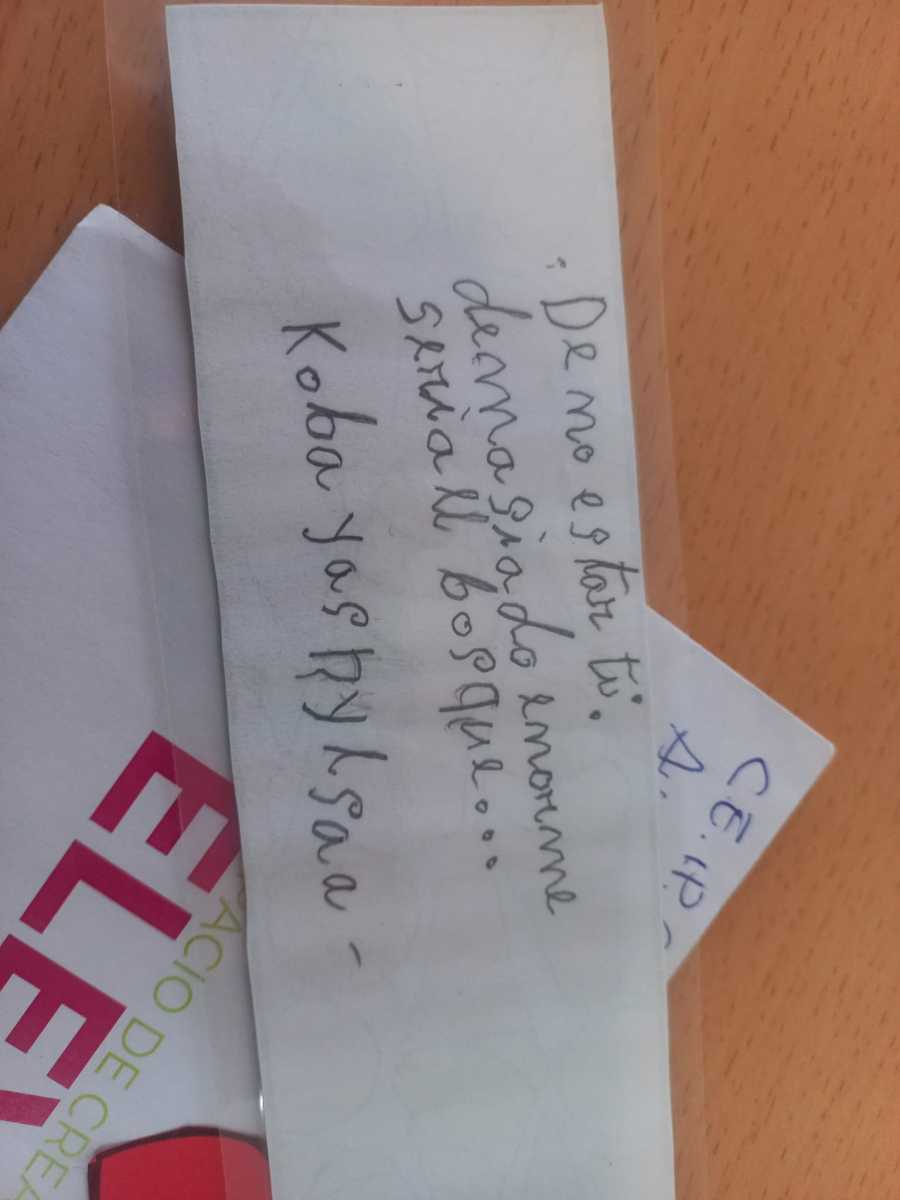 : De no estar tú.
demasiado enorme
seria ell bosque...
Koba yashy Isaa -
C.E.I.P
A.
ELE
ACIO DE CREA